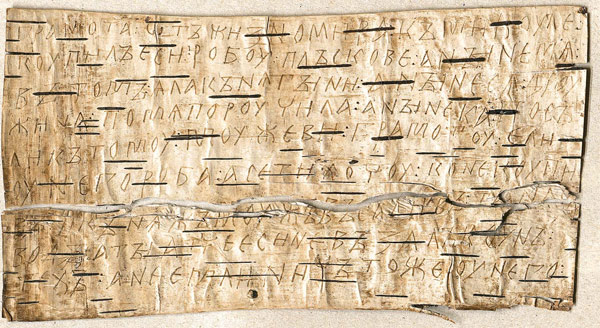 ГРАМОТА : ѠТЪ ЖИЗНОМИРА : КЪ МИКОУЛЕ :
КОУПИЛЪ ЕСИ : РОБОУ : ПЛЪСКОВЕ : А НЫНЕ МѦ :
ВЪ ТОМЪ : ѦЛА КЪНѦГЫНИ : А НЫНЕ СѦ ДРОУ
ЖИНА : ПО МѦ ПОРОУЧИЛА : А НЫНЕ КА : ПОСЪ
ЛИ КЪ ТОМОУ : МОУЖЕВИ : ГРАМОТОУ : Е ЛИ
ОУ НЕГО РОБА : А СЕ ТИ ХОЧОУ : КОНЕ КОУПИ
ВЪ : И КЪНѦЖЪ МОУЖЪ ВЪСАДИВЪ : ТА НА СЪ
ВОДЪ : А ТЫ АТЧЕ ЕСИ НЕ ВЪЗАЛЪ КОУНЪ :
ТЕХЪ : А НЕ ЕМЛИ : НИЧЪТО ЖЕ ОУ НЕГО :